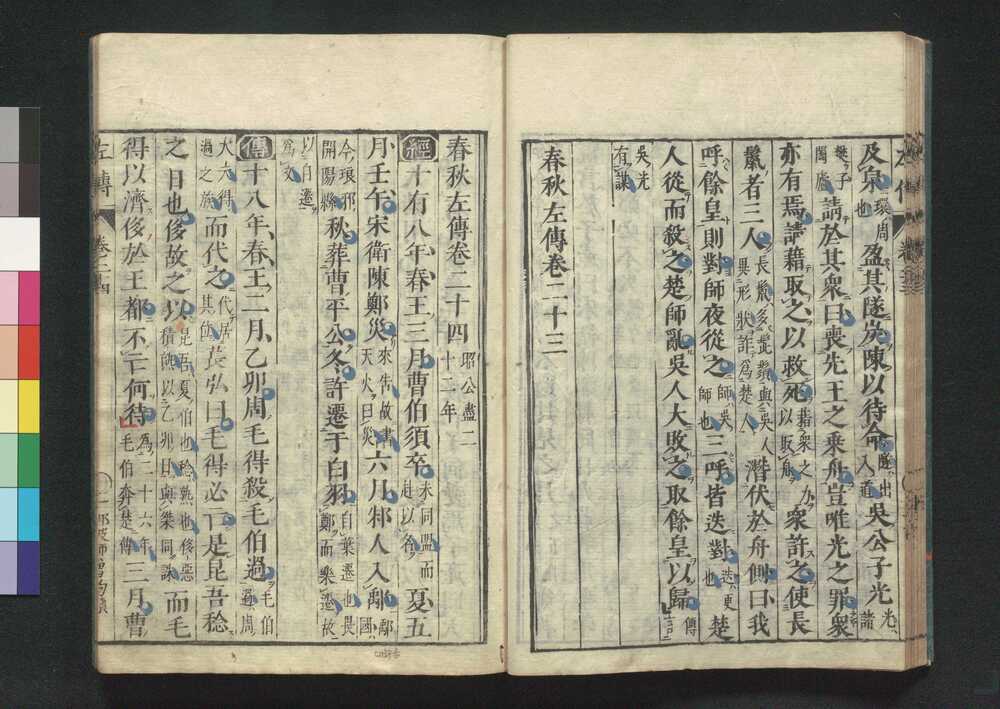 及泉環周也盈其隧炭陳以待命隧出入道吳公子光光諸
樊子闔廬請於其眾曰喪先王之乘舟豈唯光之罪眾
亦有焉請藉取之以救死藉眾之力以取舟眾許之使長
鬣者三人長鬣多髭鬚與吳人異形狀詐為楚人潛伏於舟側曰我
呼餘皇則對師夜從之師吳師也三呼皆迭對迭更也楚
人從而殺之楚師亂吳人大敗之取餘皇以歸傳言
吳光有謀
春秋左傳卷二十三
春秋左傳卷二十四昭公盡二十二年
經十有八年春王三月曹伯須卒未同盟而赴以名夏五
月壬午宋衛陳鄭災來告故書天火曰災六月邾人入鄅鄅國
今琅邪開陽縣秋葬曹平公冬許遷于白羽自葉遷也畏鄭而樂遷故
以自遷為文
傳十八年春王二月乙卯周毛得殺毛伯過毛伯過周
大夫得過之族而代之代居其位萇弘曰毛得必亡是昆吾稔
之日也侈故之以昆吾夏伯也稔熟也侈惡積熟以乙卯日與桀同誅而毛
得以濟侈於王都不亡何待為二十六年毛伯奔楚傳三月曹
左傳
卷二十四